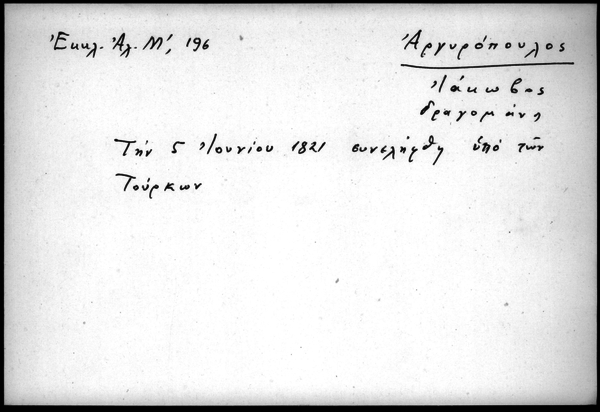 Ἐκκλ. Ἀλ. Μ', 196
Ἀργυρόπουλος
Ἰάκωβος
δραγομάνος
Τήν 5 Ἰουνίου 1821 συνελήφθη ὑπό τῶν
Τούρκων